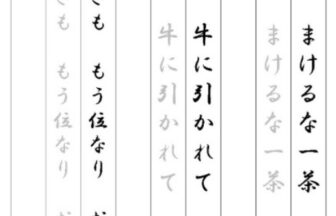 まけるな一茶
まけるな一茶
牛に引かれて
牛に引かれて
も ちう位なり
も ちう位なり